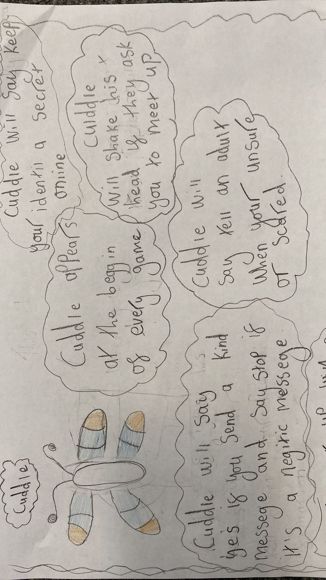 Cuddle
Cuddle will say keep
your identii a secret
online
Cuddle appears
at the beggin
of every game
Cuiddle
Will shake his
head if they ask
you to meet up
Cuddle will say
yes if you send a kind
messege and say stop if
it's a negitic messege
Cuddle will
say tell an adult
when your unsure
or scared